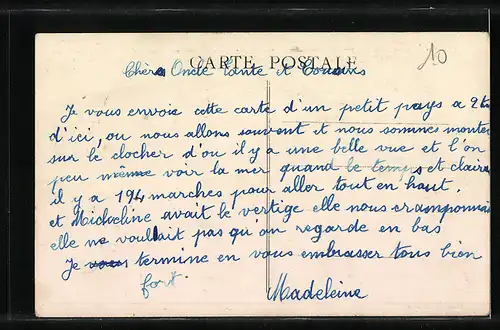 10
CARTE POSTALE
Chèrs Oncle Tante et Cousins
Je vous envoie cette carte d'un petit pays a
d'ici, ou nous allons souvent et nous sommes montés
sur le clocher d'ou il y a une belle vue et l'on
peu même voir la mer quand le temps et claire
il y a 194 marches pour aller tout en haut.
et Micheline avait le vertige elle nous cramponnais
elle ne voullait pas qu'on regarde en bas
Je termine en vous embrasser tous bien
fort.
Madeleine